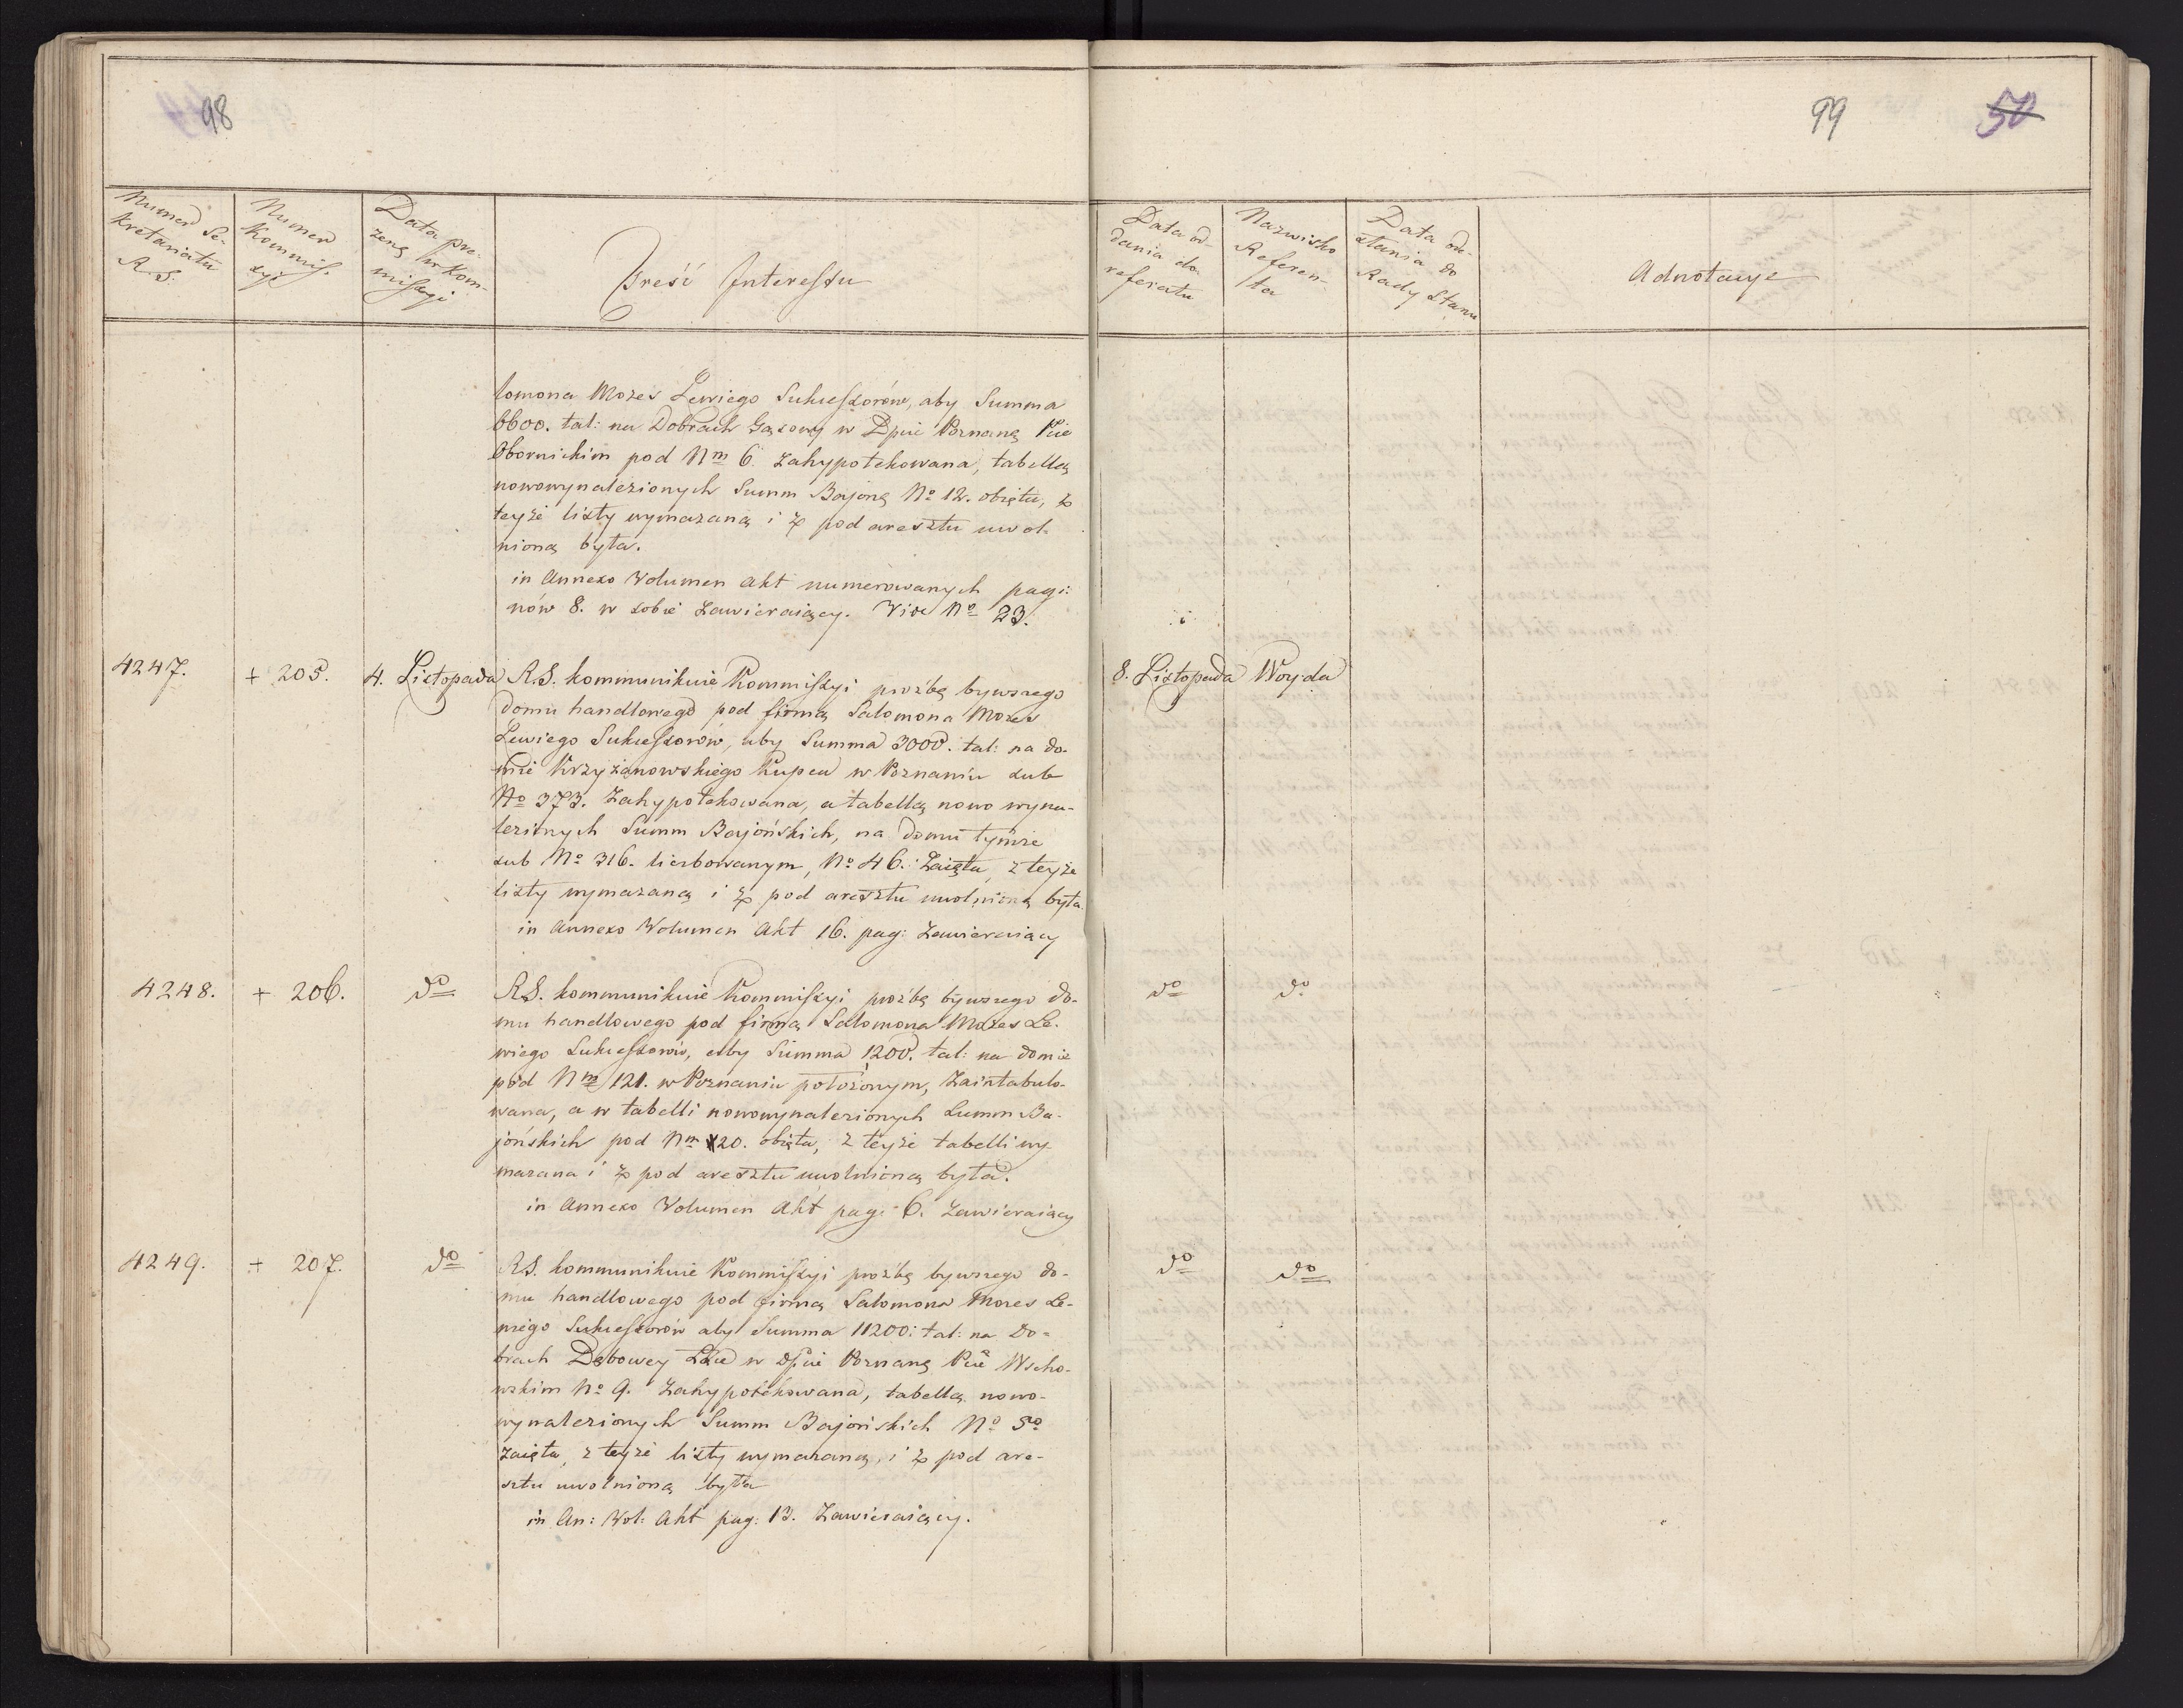 98
Numer Se-
kretariatu
R. S.
Numer
Kommis-
syi
Data pre-
zenę w Kom-
missyi
Treść Interessu
lomona Mozes Lewiego Sukcessorów, aby Summa
6600. tal: na Dobrach Gąsowy w Dpcie Poznanę Pcie
Obornickim pod Nm 6. zahypotekowana, tabellą
nowowynalezionych Summ Bajonę No 12. obięta, z
teyże listy wymazaną i z pod aresztu uwol-
nioną była.
in Annexo Volumen Akt numerowanych pagi:
nów 8. w sobie zawieraiący. Vide No 23.
4247.
+ 205.
4. Listopada
R.S. kommunikuie Kommissyi prożbę bywszego
domu handlowego pod firmą Salomona Mozes
Lewiego Sukcessorów, aby Summa 3000. tal: na do-
mie Krzyżanowskiego Kupca w Poznaniu sub
No 373. Zahypotekowana, a tabellą nowo wyna-
lezionych Summ Bajońskich, na domu tymże
sub No 316. liczbowanym, No 46. Zaięta, z teyże
listy wymazaną i z pod aresztu uwolnioną była.
in Annexo Volumen Akt 16. pag: Zawieraiący
4248.
+ 206.
do
R.S. kommunikuie Kommissyi prożbę bywszego do-
mu handlowego pod firmą Salomona Mozes Le-
wiego Sukcessorów, aby Summa 1200. tal: na domie
pod Nm 121. w Poznaniu położonym, Zaintabulo-
wana, a w tabelli nowowynalezionych Summ Ba-
jońskich pod Nm 20. obięta, z teyże tabelli wy-
mazana i z pod aresztu uwolnioną była.
in Annexo Volumen Akt pag: 6. Zawieraiący
4249.
+ 207.
do
R.S. kommunikuie Kommissyi prożbę bywszego do-
mu handlowego pod firmą Salomona Mozes Le-
wiego Sukcessorów aby Summa 11200: tal: na Do-
brach Dębowey Łęce w Dpcie Poznanę Pcie Wscho-
wskim No 9. Zahypotekowana, tabellą nowo-
wynalezionych Summ Bajońskich No 50
Zaięta, z teyże listy wymazaną, i z pod are-
sztu uwolnioną była
in An: Vol: Akt pag: 13. Zawieraiący.
99
50
Data od-
dania do
referatu
Nazwisko
Referen-
ta
Data ode-
słania do
Rady Stanu
Adnotacye
8. Listopada
Woyda
do
do
do
do